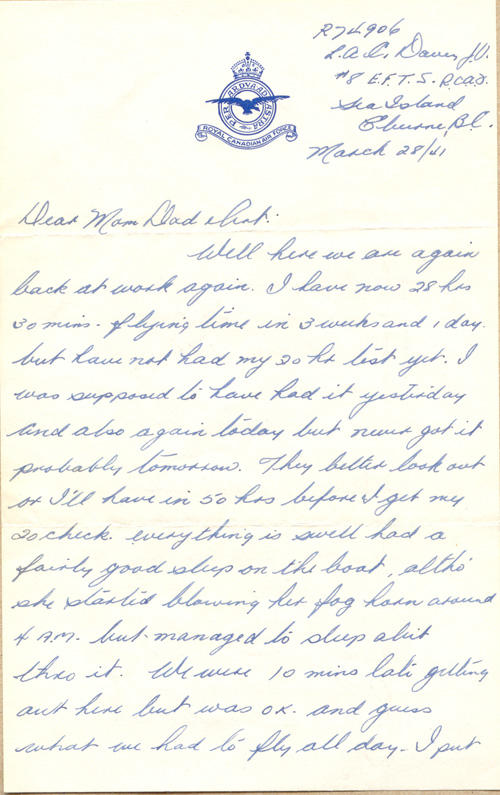 R74906
L.A.C. Davies J.V.
#8 E.F.T.S. R.C.A.F.
Sea Island
Eburne, B.C.
March 28/41
PER ARDVA AD ASTRA
ROYAL CANADIAN AIR FORCE
Dear Mom Dad & Art:
Well here we are again
back at work again. I have now 28 hrs
30 mins. flying time in 3 weeks and 1 day.
but have not had my 20 hr test yet. I
was supposed to have had it yesterday
and also again today but never got it
probably tomorrow. They better look out
or I'll have in 50 hrs before I get my
20 check. everything is swell had a
fairly good sleep on the boat, altho'
she started blowing her fog horn around
4 A.M. but managed to sleep abit
thro it. We were 10 mins late getting
out here but was O.K. and guess
what we had to fly all day. I put